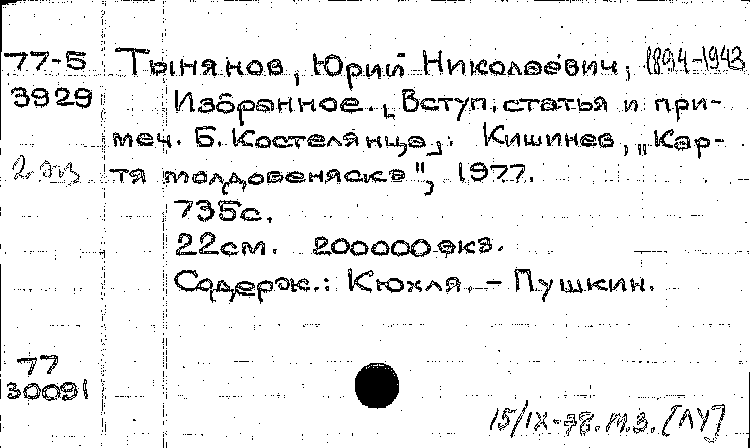 77-5 Тынянов, Юрий Николаевич, 1894-1943
3929 Избранное. [Вступ. статья и при-
меч. Б. Костелянца]. Кишинев, "Кар-
2 экз тя молдовеняскэ", 1977.
735с.
22см. 200000 экз.
Содерж.: Кюхля. - Пушкин.
77
30091
15/IX-78. т.з. [ЛУ]